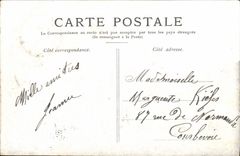 CARTE POSTALE
La Correspondance au recto n'est pas acceptée par tous les pays étrangers
(Se renseigner à la Poste)
Côté correspondance.
Côté adresse.
Mille amitiés
Jeanne
Mademoiselle
Marguerite
87 rue de Normandie
Courbevoie